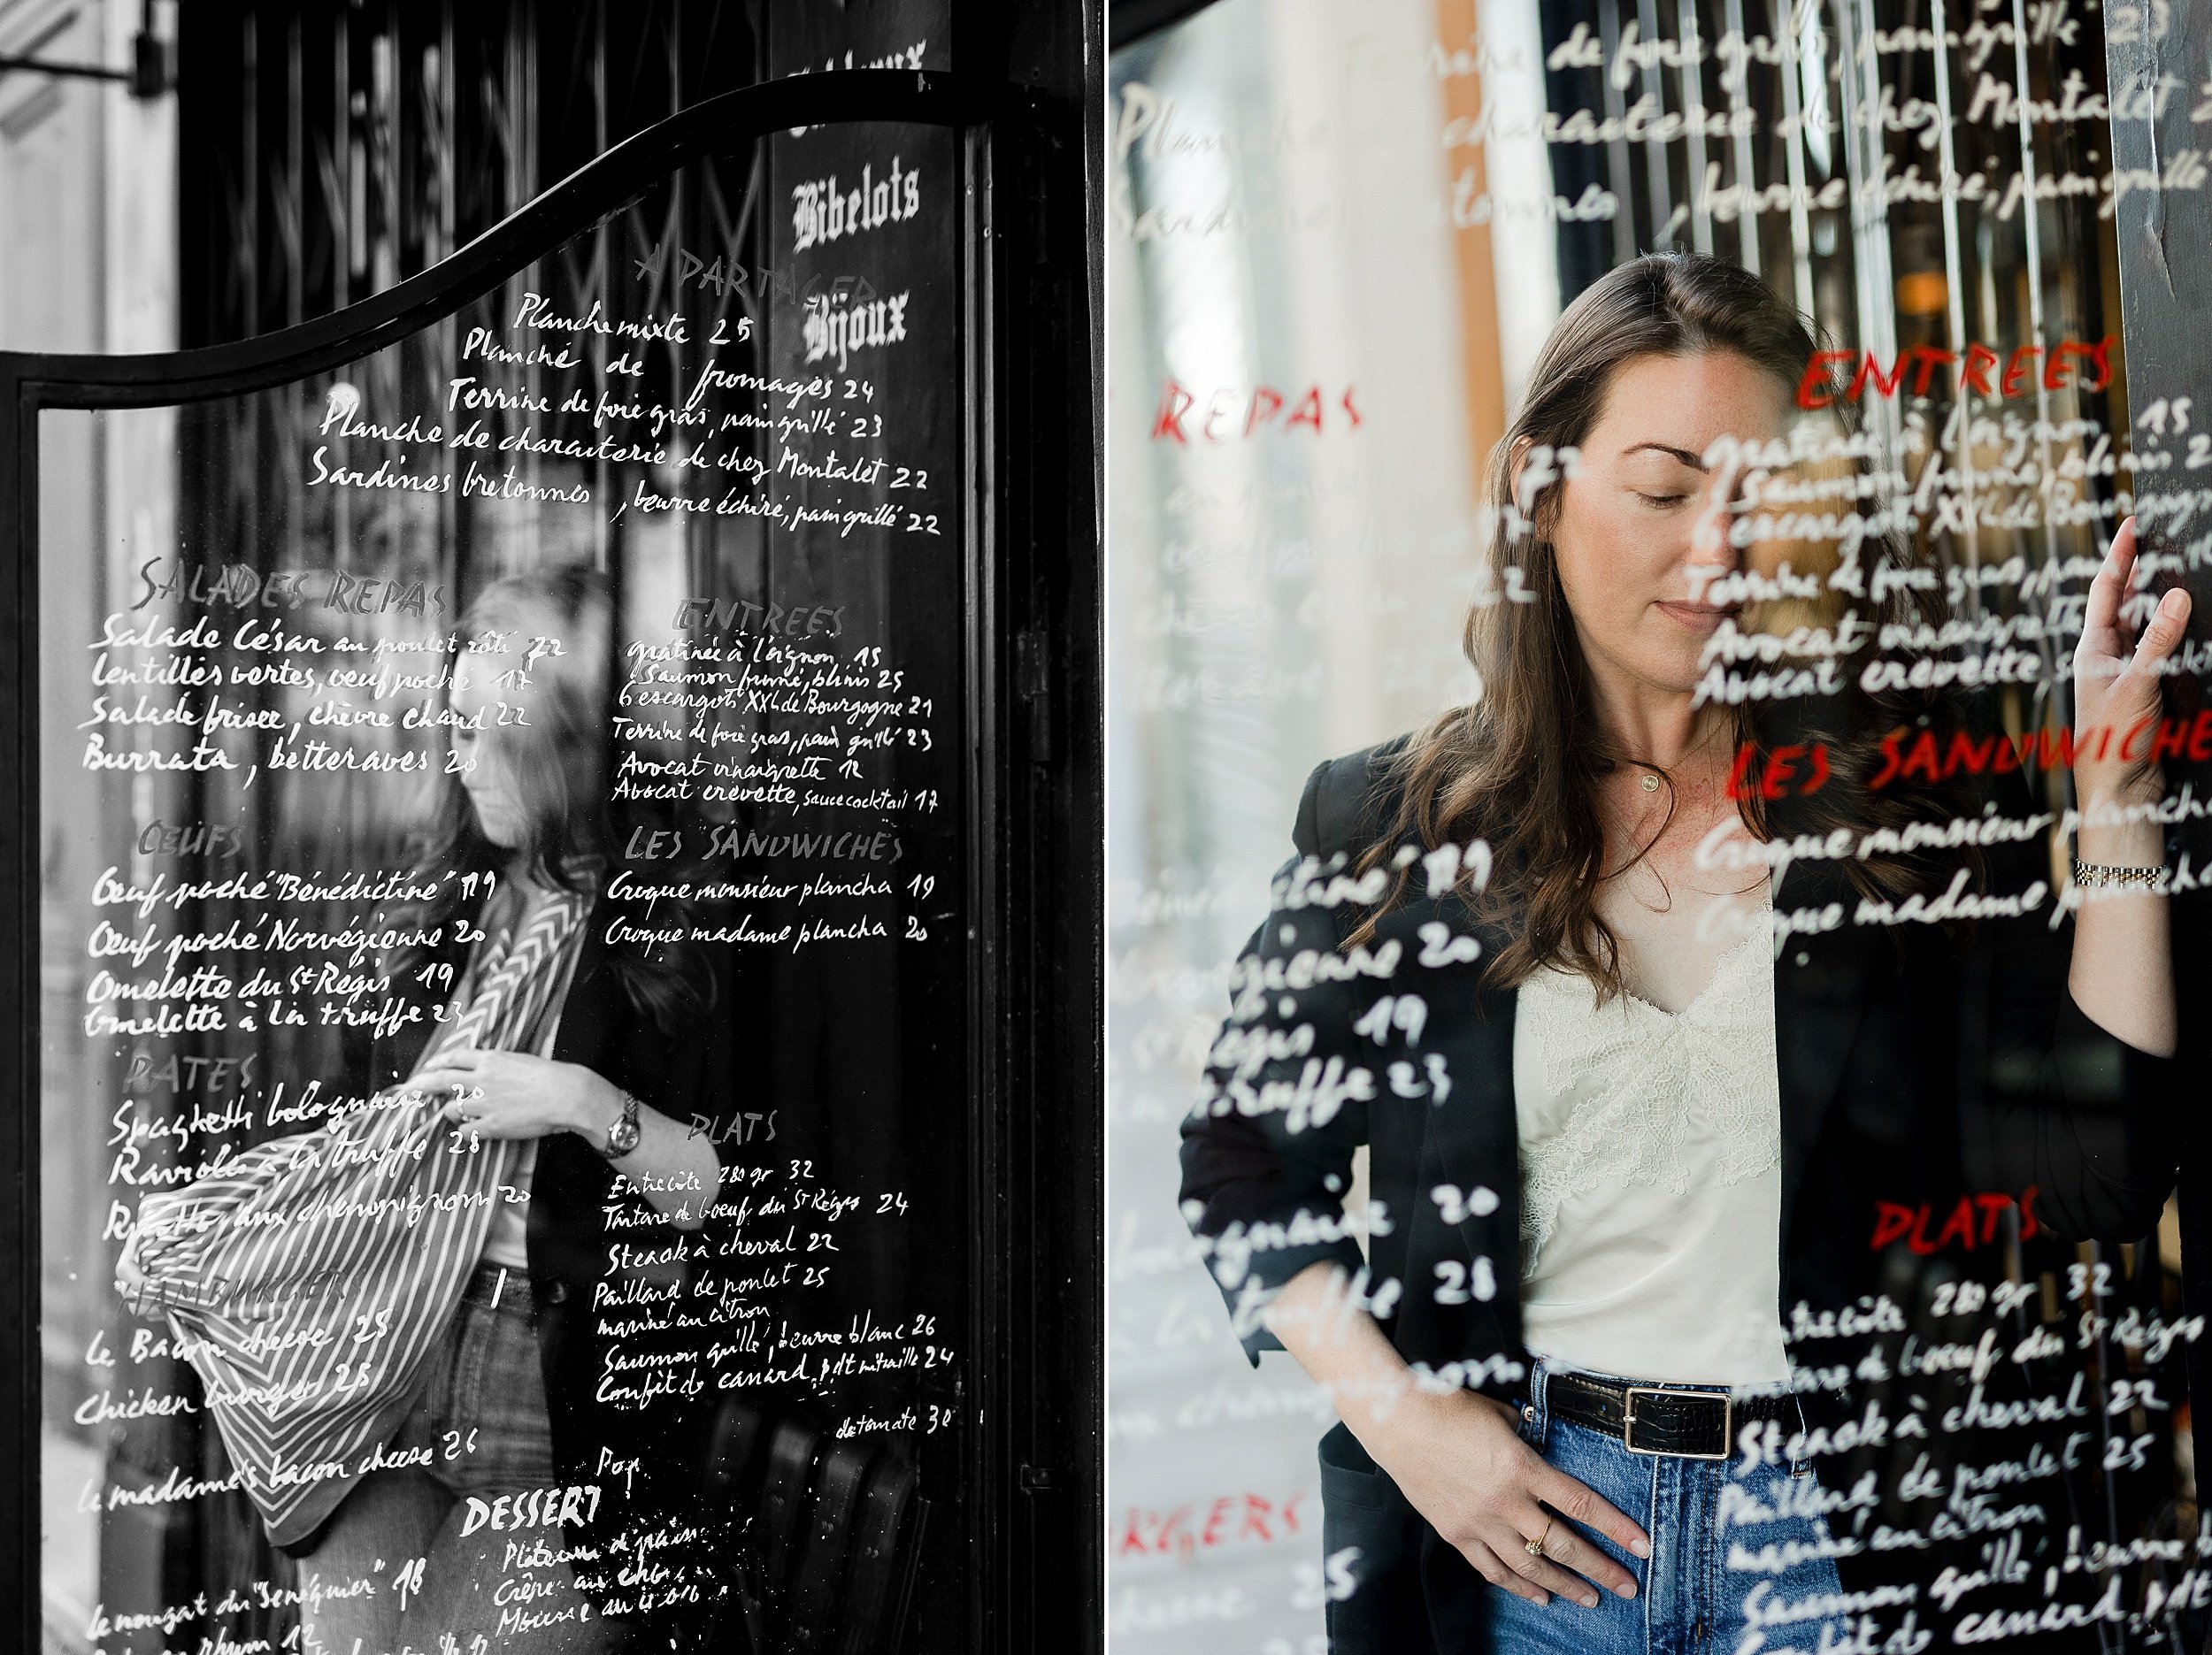 Bibelots
Bijoux
A PARTAGER
Planche mixte 25
Planche de fromages 24
Terrine de foie gras, pain grillé 23
Planche de charcuterie de chez Montalet 22
Sardines bretonnes, beurre échiré, pain grillé 22
SALADES REPAS
Salade César au poulet rôti 22
Lentilles vertes, oeuf poché 17
Salade frisée, chèvre chaud 22
Burrata, betteraves 20
OEUFS
Oeuf poché "Bénédictine" 19
Oeuf poché Norvégienne 20
Omelette du St Régis 19
Omelette à la truffe 23
PATES
Spaghetti bolognaise 20
Ravioles à la truffe 28
Risotto aux champignons 20
HAMBURGERS
Le Bacon cheese 25
Chicken burger 25
Le madame's bacon cheese 26
Le nougat du "Senéquier" 18
rhum 12
ENTREES
gratinée à l'oignon 15
Saumon fumé, blinis 25
6 escargots XXL de Bourgogne 21
Terrine de foie gras, pain grillé 23
Avocat vinaigrette 12
Avocat crevette, sauce cocktail 17
LES SANDWICHES
Croque monsieur plancha 19
Croque madame plancha 20
PLATS
Entrecôte 280 gr 32
Tartare de boeuf du St Régis 24
Steack à cheval 22
Paillard de poulet 25
mariné au citron
Saumon grillé, beurre blanc 26
Confit de canard, pdt mitraille 24
de tomate 30
Pop
DESSERT
de foie gras, pain grillé 23
Planche charcuterie de chez Montalet
, beurre échiré, pain grillé
REPAS
22
17
22
19
20
19
truffe 23
20
truffe 28
25
ENTREES
gratinée à l'oignon 15
Saumon fumé, blinis
6 escargots XXL de Bourgogne
Terrine de foie gras, pain
Avocat vinaigrette 12
Avocat crevette, sauce
LES SANDWICHE
Croque monsieur plancha
Croque madame plancha
PLATS
280 gr 32
de boeuf du St Régis
Steack à cheval 22
Paillard de poulet 25
mariné au citron
Saumon grillé, beurre
Confit de canard, pdt